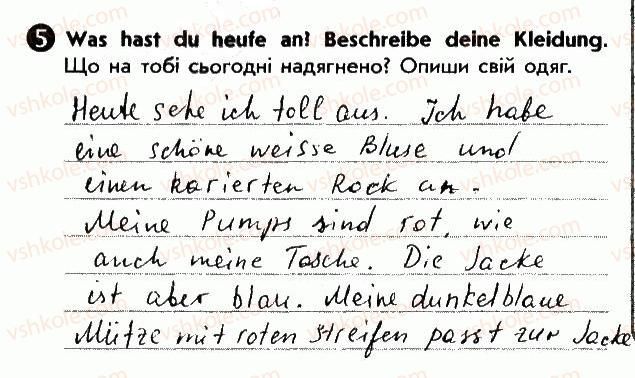 5 Was hast du heute an? Beschreibe deine Kleidung.
Що на тобі сьогодні надягнено? Опиши свій одяг.
Heute sehe ich toll aus. Ich habe
eine schöne weisse Bluse und
einen karierten Rock an.
Meine Pumps sind rot, wie
auch meine Tasche. Die Jacke
ist aber blau. Meine dunkelblaue
Mütze mit roten streifen passt zur Jacke